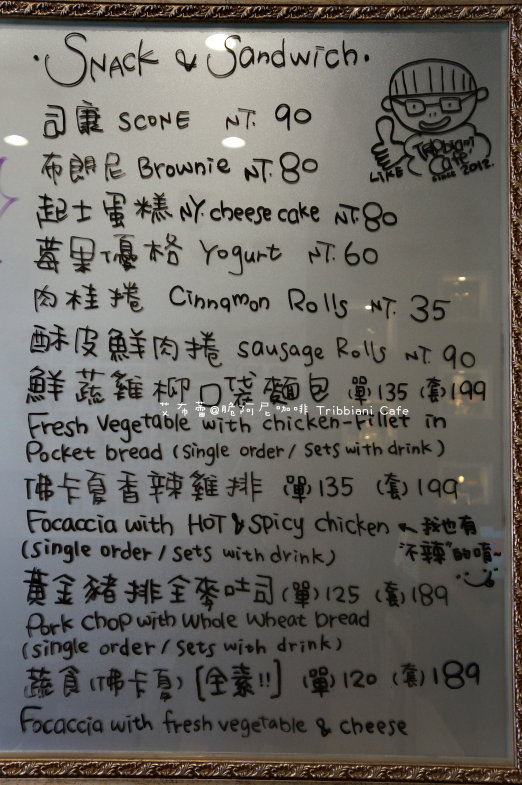 ·Snack & Sandwich·
司康 SCONE NT. 90
布朗尼 Brownie NT. 80
起士蛋糕 NY. cheese cake NT. 80
莓果優格 Yogurt NT. 60
肉桂捲 Cinnamon Rolls NT. 35
酥皮鮮肉捲 sausage Rolls NT. 90
鮮蔬雞柳口袋麵包 (單)135 (套)199
Fresh Vegetable with chicken-fillet in
Pocket bread (Single order / Sets with drink)
佛卡夏香辣雞排 (單)135 (套)199
Focaccia with HOT & Spicy chicken ← 我也有
(single order / Sets with drink) "不辣"的唷~
黃金豬排全麥吐司 (單)125 (套)189
Pork chop with whole wheat bread
(single order / Sets with drink)
蔬食(佛卡夏) [全素!!] (單)120 (套)189
Focaccia with fresh vegetable & cheese
Tribbiani
Cafe
since 2012.
LIKE
艾布蕾@脆阿尼咖啡 Tribbiani Cafe